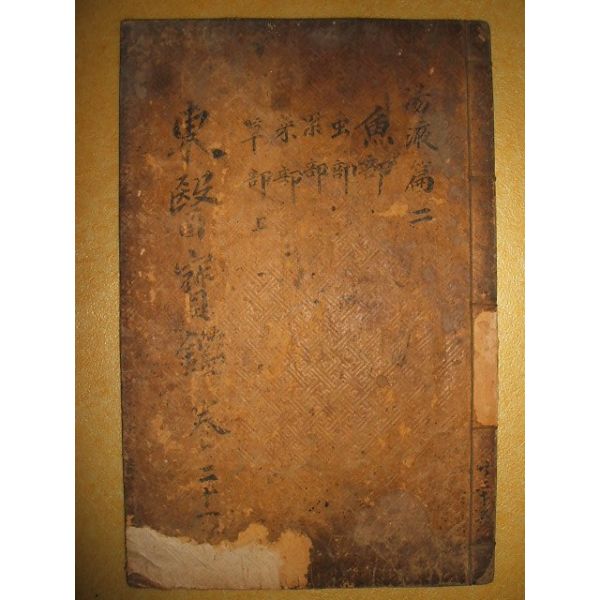 湯液篇二
魚部
虫部
果部
菜部
草部上
東醫寶鑑 卷之二十一